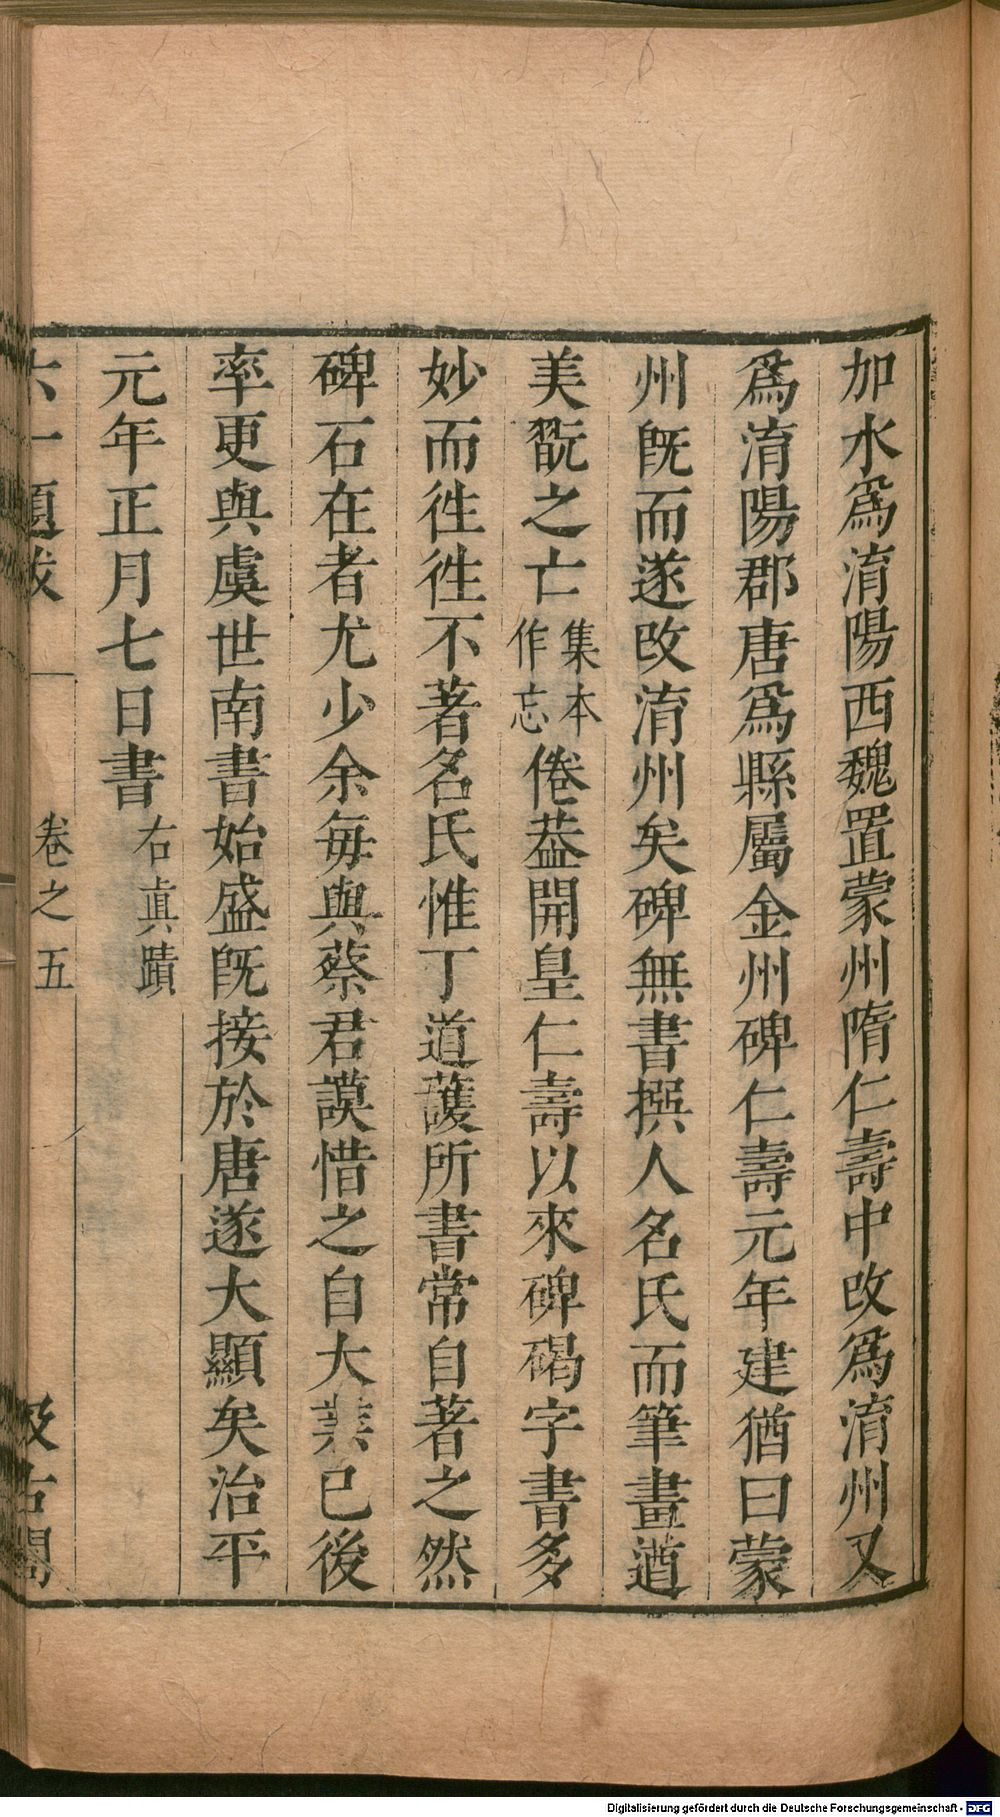 加水爲淯陽西魏置蒙州隋仁壽中改爲淯州又
爲淯陽郡唐爲縣屬金州碑仁壽元年建猶曰蒙
州旣而遂改淯州矣碑無書撰人名氏而筆畫遒
美翫之亡集本作忘倦葢開皇仁壽以來碑碣字書多
妙而徃徃不著名氏惟丁道護所書常自著之然
碑石在者尤少余每與蔡君謨惜之自大業已後
率更與虞世南書始盛旣接於唐遂大顯矣治平
元年正月七日書右眞蹟
六一題跋 卷之五 汲古閣
Digitalisierung gefördert durch die Deutsche Forschungsgemeinschaft - DFG